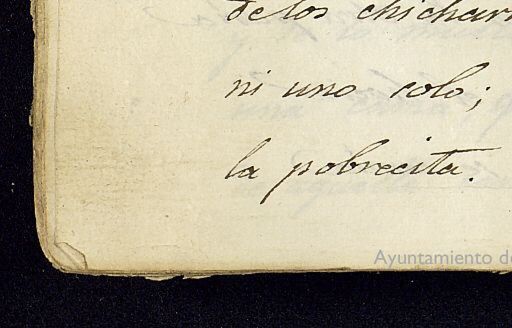 de los chichar
ni uno solo;
la pobrecita.
Ayuntamiento de